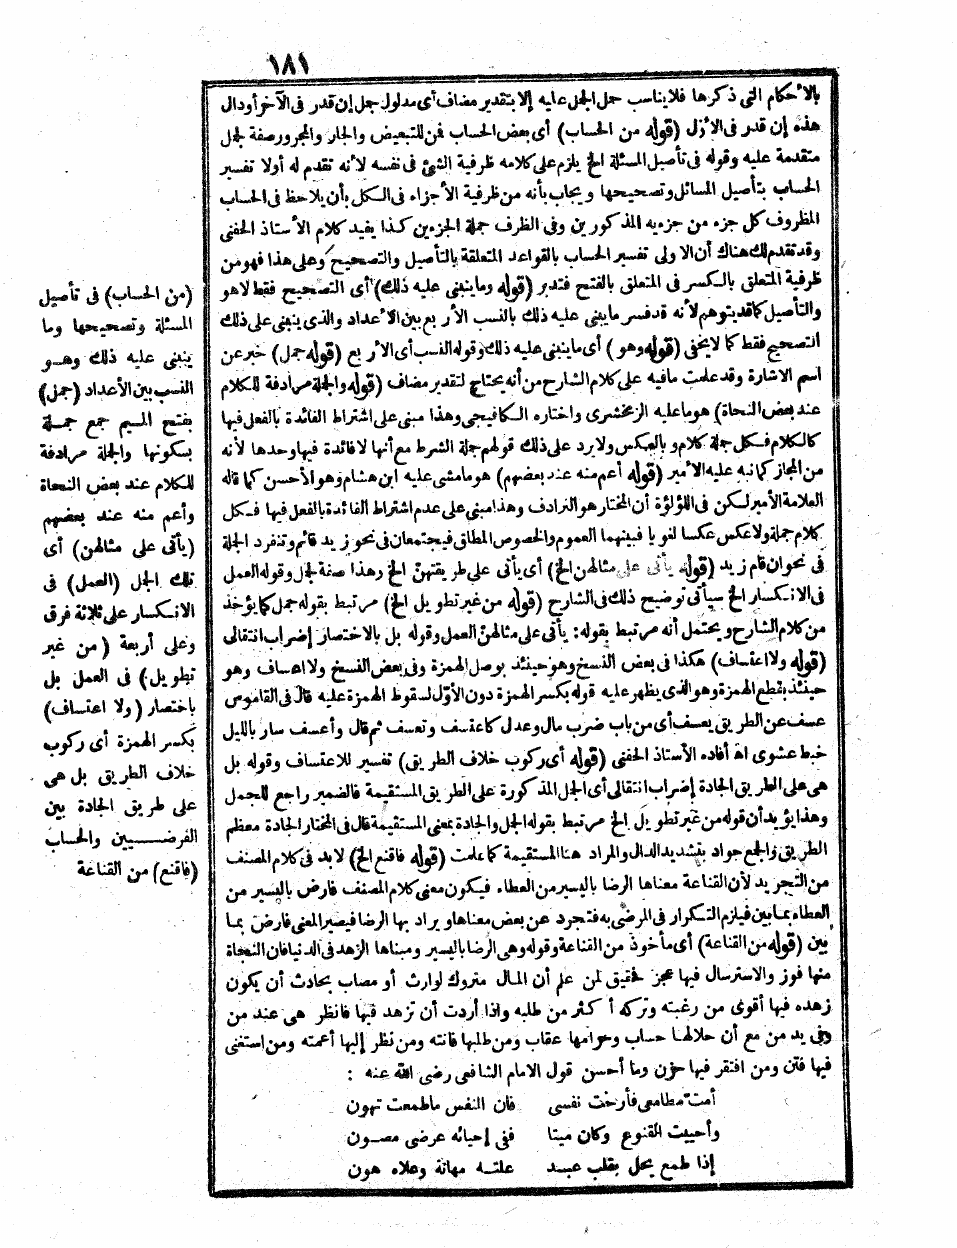 ١٨١
بالأحكام التى ذكرها فلا يناسب حمل الجمل عليه إلا بتقدير مضاف أى مدلول جمل إن قدر فى الآخر أو دال
هذه إن قدر فى الأول (قوله من الحساب) أى بعض الحساب فمن للتبعيض والجار والمجرور صفة لجمل
متقدمة عليه وقوله فى تأصيل المسئلة الخ يلزم على كلامه ظرفية الشئ فى نفسه لأنه تقدم له أولا تفسير
الحساب بتأصيل المسائل وتصحيحها ويجاب بأنه من ظرفية الأجزاء فى الكل بأن يلاحظ فى الحساب
المظروف كل جزء من جزءيه المذكورين وفى الظرف جملة الجزءين كذا يفيد كلام الأستاذ الحفنى
وقد تقدم لك هناك أن الاولى تفسير الحساب بالقواعد المتعلقة بالتأصيل والتصحيح وعلى هذا فهو من
ظرفية المتعلق بالكسر فى المتعلق بالفتح فتدبر (قوله وما ينبنى عليه ذلك) أى التصحيح فقط لا هو
والتأصيل كما قد يتوهم لأنه قد فسر ما ينبنى عليه ذلك بالنسب الأربع بين الأعداد والذى ينبنى على ذلك
التصحيح فقط كما لا يخفى (قوله وهو) أى ما ينبنى عليه ذلك وقوله النسب أى الأربع (قوله جمل) خبر عن
اسم الاشارة وقد علمت ما فيه على كلام الشارح من أنه يحتاج لتقدير مضاف (قوله والجملة مرادفة للكلام
عند بعض النحاة) هو ما عليه الزمخشرى واختاره الكافيجى وهذا مبنى على اشتراط الفائدة بالفعل فيها
كالكلام فكل جملة كلام وبالعكس ولا يرد على ذلك قولهم جملة الشرط مع أنها لا فائدة فيها وحدها لأنه
من المجاز كما نبه عليه الأمير (قوله أعم منه عند بعضهم) هو ما مشى عليه ابن هشام وهو الأحسن كما قاله
العلامة الأمير لكن فى اللؤلؤة أن المختار هو الترادف وهذا مبنى على عدم اشتراط الفائدة بالفعل فيها فكل
كلام جملة ولا عكس عكسا لغويا فبينهما العموم والخصوص المطلق فيجتمعان فى نحو زيد قائم وتنفرد الجملة
فى نحو ان قام زيد (قوله يأتى على مثالهن الخ) أى يأتى على طريقتهن الخ وهذا صفة لجمل وقوله العمل
فى الانكسار الخ سيأتى توضيح ذلك فى الشارح (قوله من غير تطويل الخ) مرتبط بقوله جمل كما يؤخذ
من كلام الشارح ويحتمل أنه مرتبط بقوله: يأتى على مثالهن العمل وقوله بل بالاختصار إضراب انتقالى
(قوله ولا اعتساف) هكذا فى بعض النسخ وهو حينئذ بوصل الهمزة وفى بعض النسخ ولا اعساف وهو
حينئذ بقطع الهمزة وهو الذى يظهر عليه قوله بكسر الهمزة دون الأول لسقوط الهمزة عليه قال فى القاموس
عسف عن الطريق يعسف أى من باب ضرب مال وعدل كاعتسف وتعسف ثم قال وأعسف سار بالليل
خبط عشوى اه أفاده الأستاذ الحفنى (قوله أى ركوب خلاف الطريق) تفسير للاعتساف وقوله بل
هى على الطريق الجادة إضراب انتقالى أى الجمل المذكورة على الطريق المستقيمة فالضمير راجع للجمل
وهذا يؤيد أن قوله من غير تطويل الخ مرتبط بقوله الجمل والجادة بمعنى المستقيمة قال فى المختار الجادة معظم
الطريق والجمع جواد بتشديد الدال والمراد هنا المستقيمة كما علمت (قوله فاقنع الخ) لابد فى كلام المصنف
من التجريد لأن القناعة معناها الرضا باليسير من العطاء فيكون معنى كلام المصنف فارض باليسير من
العطاء بما بين فيلزم التكرار فى المرضى به فتجرد عن بعض معناها ويراد بها الرضا فيصير المعنى فارض بما
بين (قوله من القناعة) أى مأخوذ من القناعة وقوله وهى الرضا باليسير ومبناها الزهد فى الدنيا فان النجاة
منها فوز والاسترسال فيها عجز فحقيق لمن علم أن المال متروك لوارث أو مصاب بحادث أن يكون
زهده فيها أقوى من رغبته وتركه أكثر من طلبه واذا أردت أن تزهد فيها فانظر هى عند من
وفى يد من مع أن حلالها حساب وحرامها عقاب ومن طلبها فاتته ومن نظر إليها أعمته ومن استغنى
فيها فتن ومن افتقر فيها حزن وما أحسن قول الامام الشافعى رضى الله عنه :
أمت مطامعى فأرحت نفسى فان النفس ما طمعت تهون
وأحييت القنوع وكان ميتا ففى إحيائه عرضى مصون
إذا طمع يحل بقلب عبد علته مهانة وعلاه هون
(من الحساب) فى تأصيل
المسئلة وتصحيحها وما
ينبنى عليه ذلك وهو
النسب بين الأعداد (جمل)
بفتح الميم جمع جملة
بسكونها والجملة مرادفة
للكلام عند بعض النحاة
وأعم منه عند بعضهم
(يأتى على مثالهن) أى
تلك الجمل (العمل) فى
الانكسار على ثلاثة فرق
وعلى أربعة (من غير
تطويل) فى العمل بل
باختصار (ولا اعتساف)
بكسر الهمزة أى ركوب
خلاف الطريق بل هى
على طريق الجادة بين
الفرضيين والحساب
(فاقنع) من القناعة